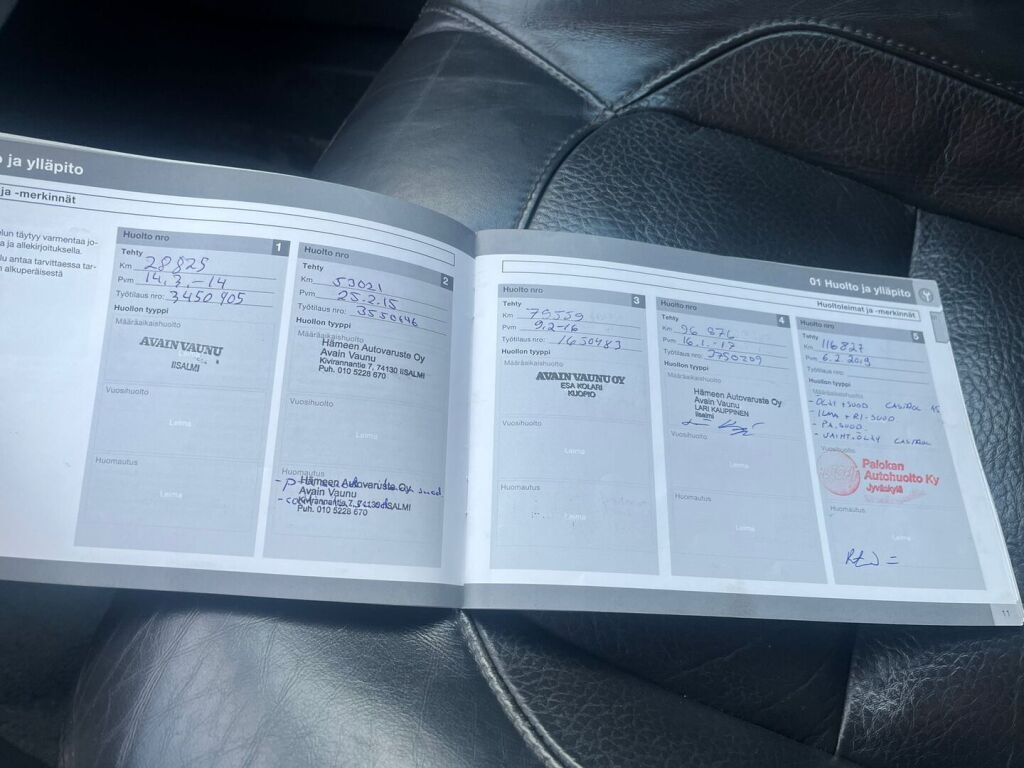 o ja ylläpito
ja -merkinnät
elun täytyy varmentaa jo-
a ja allekirjoituksella.
lu antaa tarvittaessa tar-
n alkuperäisestä
Huolto nro 1
Tehty
Km 28825
Pvm 14.3.-14
Työtilaus nro: 3450405
Huollon tyyppi
Määräaikaishuolto
AVAIN VAUNU
IISALMI
Vuosihuolto
Leima
Huomautus
Leima
Huolto nro 2
Tehty
Km 53021
Pvm 25.2.15
Työtilaus nro: 3550446
Huollon tyyppi
Määräaikaishuolto
Hämeen Autovaruste Oy
Avain Vaunu
Kivirannantie 7, 74130 IISALMI
Puh. 010 5228 670
Vuosihuolto
Leima
Huomautus
Hämeen Autovaruste Oy
Avain Vaunu
Kivirannantie 7, 74130 IISALMI
Puh. 010 5228 670
01 Huolto ja ylläpito
Huoltoleimat ja -merkinnät
Huolto nro 3
Tehty
Km 79559
Pvm 9.2-16
Työtilaus nro: 1650483
Huollon tyyppi
Määräaikaishuolto
AVAIN VAUNU OY
ESA KOLARI
KUOPIO
Vuosihuolto
Leima
Huomautus
Leima
Huolto nro 4
Tehty
Km 96 876
Pvm 16.1.-17
Työtilaus nro: 2750209
Huollon tyyppi
Määräaikaishuolto
Hämeen Autovaruste Oy
Avain Vaunu
LARI KAUPPINEN
Iisalmi
Vuosihuolto
Leima
Huomautus
Leima
Huolto nro 5
Tehty
Km 116827
Pvm 6.2.2019
Työtilaus nro:
Huollon tyyppi
Määräaikaishuolto
- ÖLJY + SUOD CASTROL
- ILMA + RI-SUOD
- PA.SUOD
- VAIHT.ÖLJY CASTROL
Vuosihuolto
Palokan
Autohuolto Ky
Jyväskylä
Huomautus
Leima
11